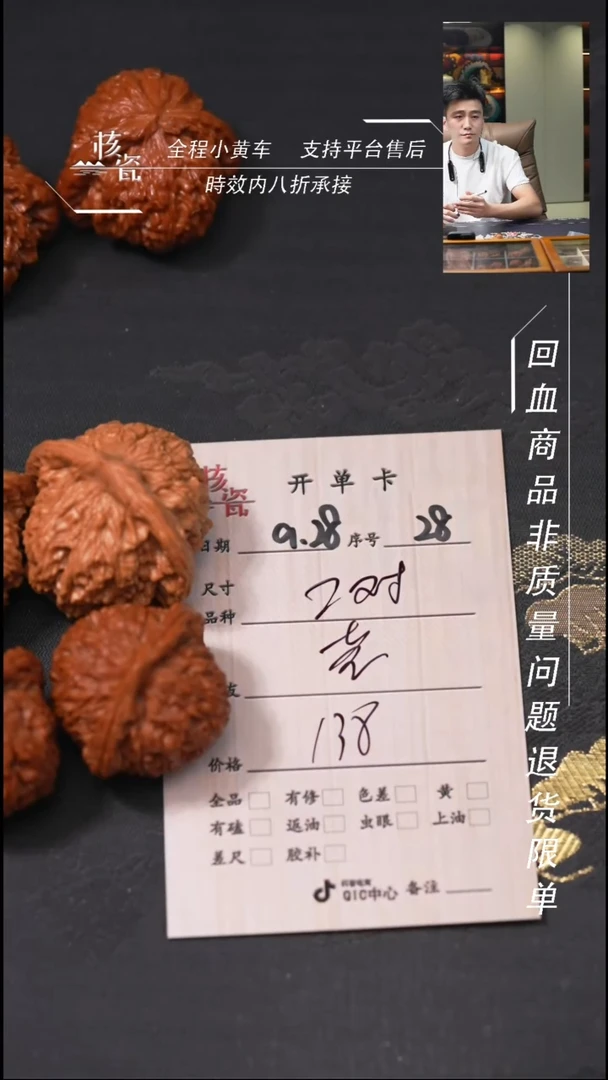 核瓷
全程小黄车 支持平台售后
時效内八折承接
回血商品非质量问题退货限单
核瓷
开单卡
日期 9.28 序号 28
尺寸
品种 2对
友
价格 138
全品 有修 色差 黄
有磕 返油 虫眼 上油
差尺 胶补
抖音电商
QIC中心 备注